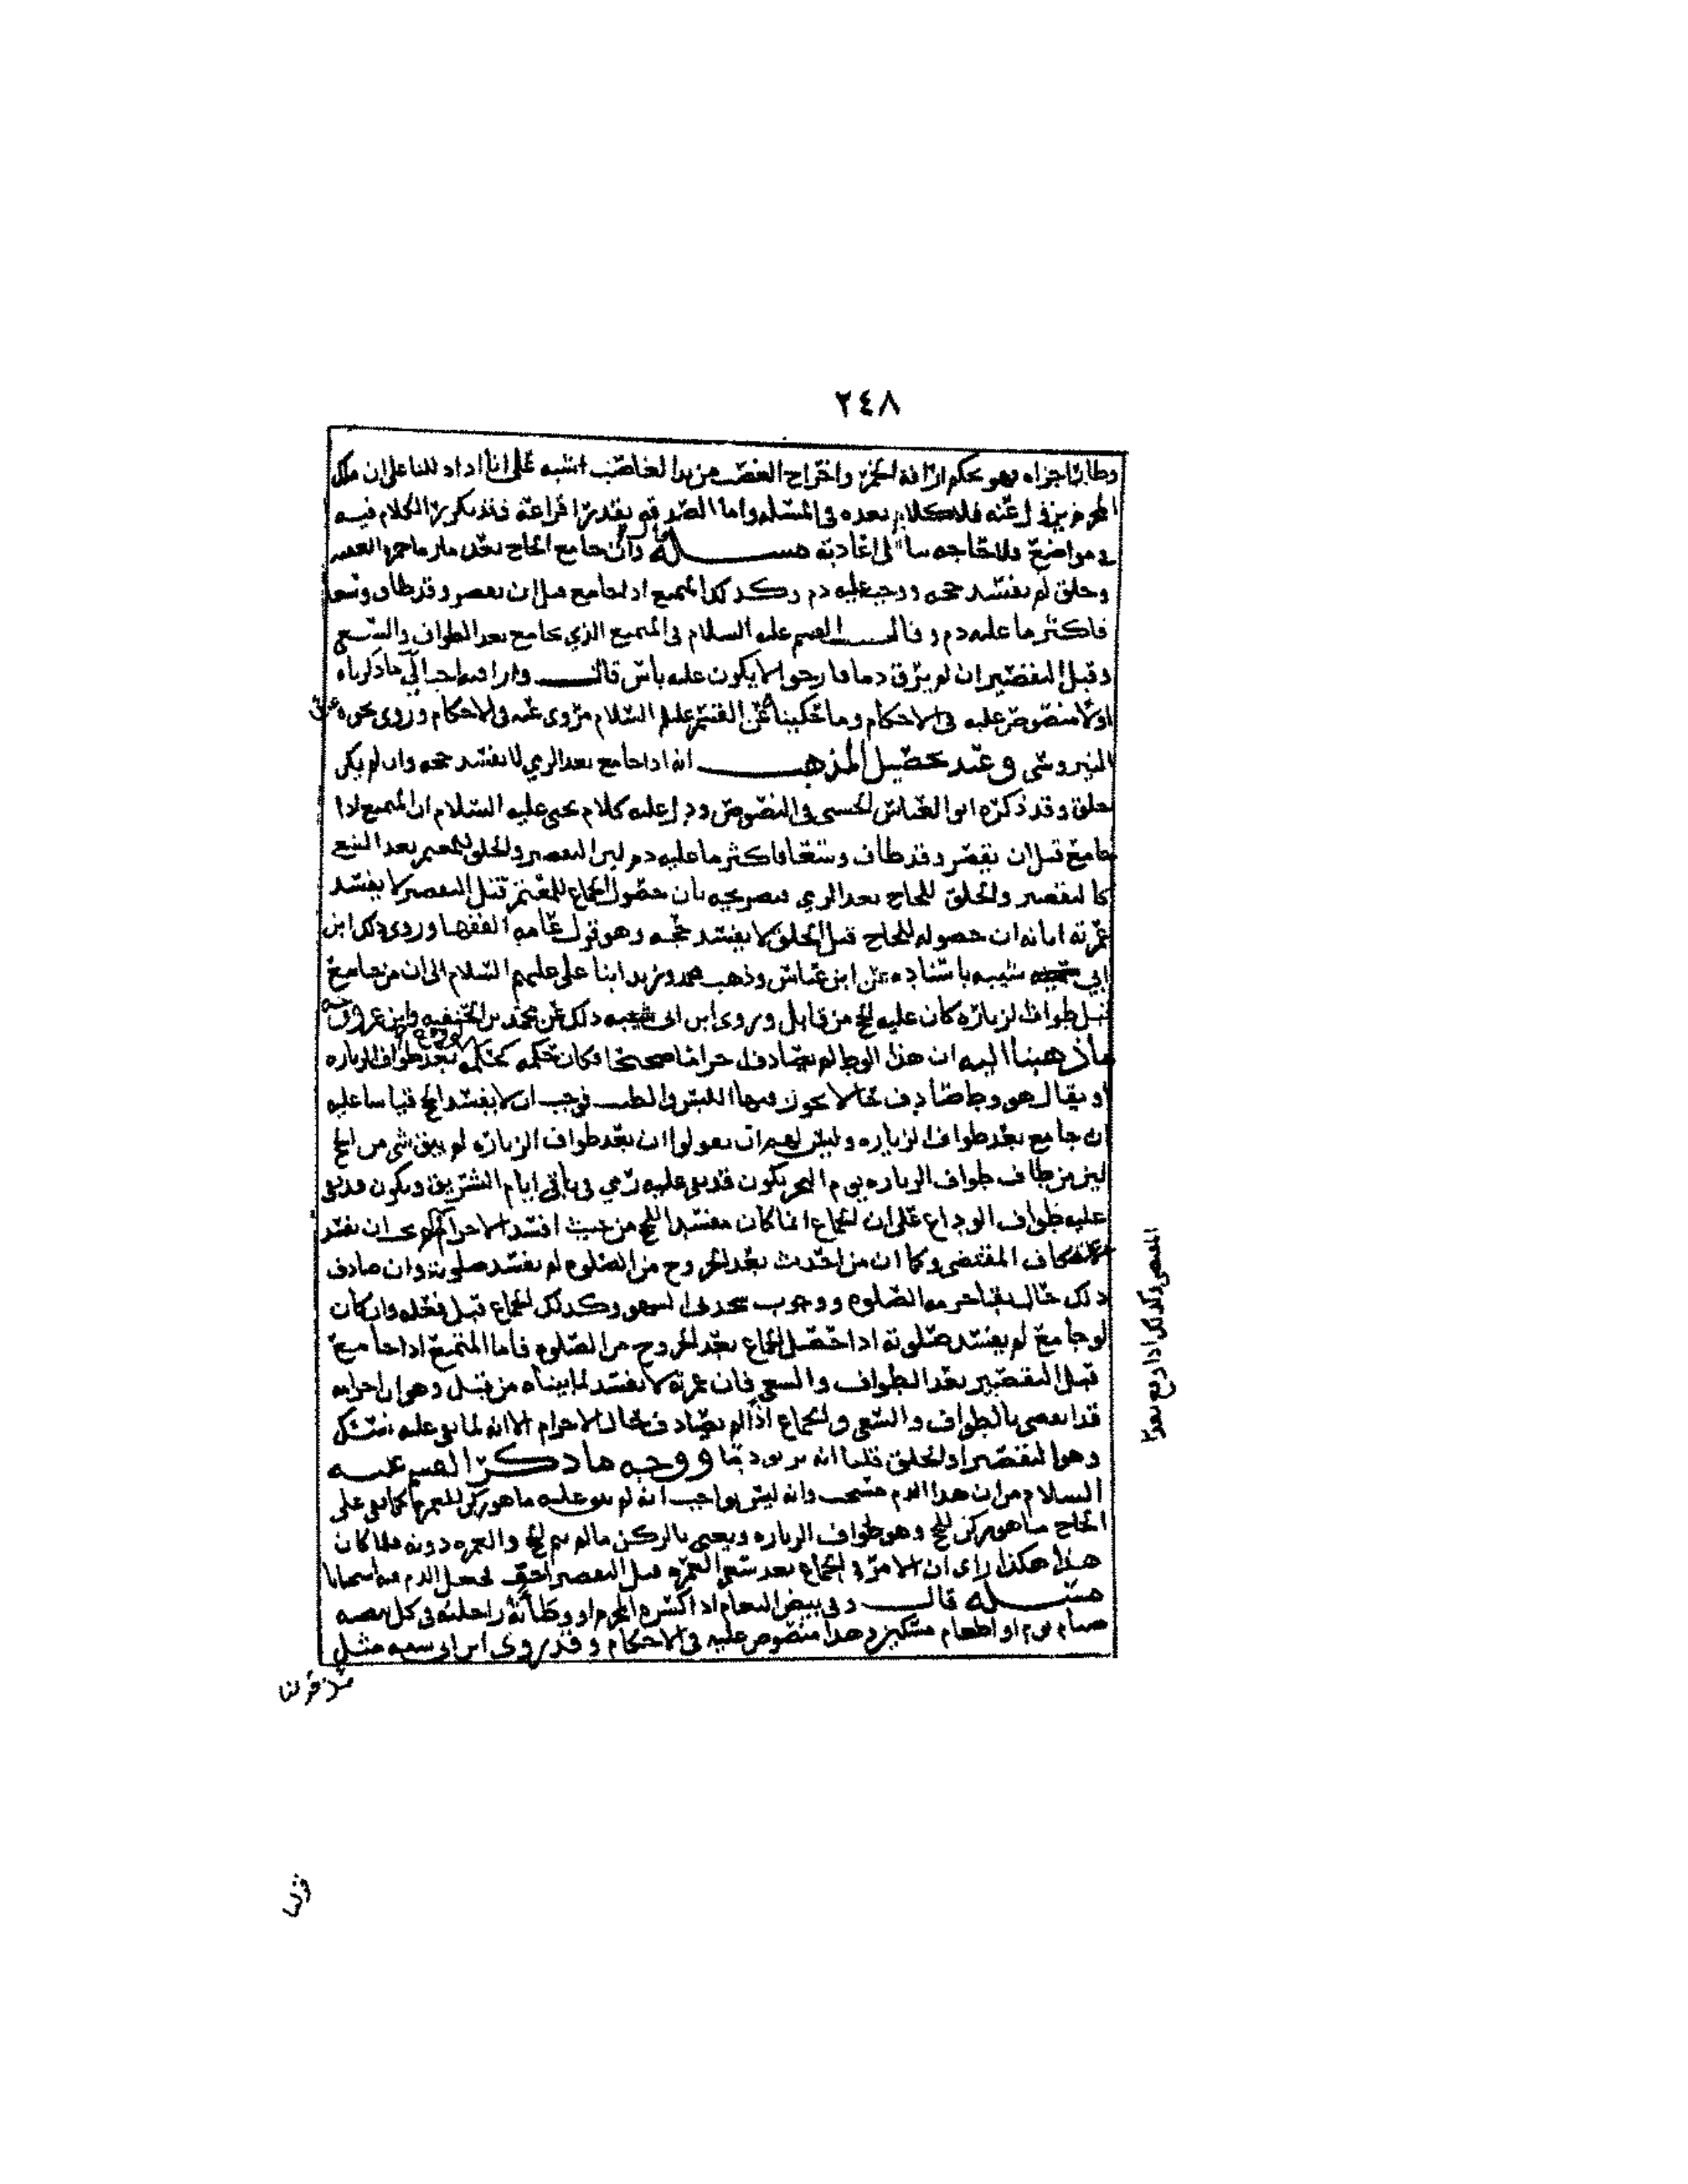 ٢٤٨
وطايرا جزاه فهو بحكم اراقة الخمر واخراج الغصب من يد الغاصب اشبه على انا اذا دللنا على ان ملك
المحرم يزول عنه فلا كلام بعده في المسله واما الصدقه بقدر افزاعه فقد تكرر الكلام فيه
في مواضع ولا حاجه بنا الى اعادته مسـله قال وان جامع الحاج بعد ما رما جمره العقبه
وحلق لم يفسد حجه ووجب عليه دم وكذلك المتمتع اذا جامع قبل ان يقصر وقد طاف وسعا
فاكثر ما عليه دم وقال القسم عليه السلام في المتمتع الذي يجامع بعد الطواف والسعي
وقبل التقصير ان لم يرق دما فارجوا الا يكون عليه باس قال واراقته احب الي ما ذكرناه
اولا منصوص عليه في الاحكام وما حكيناه عن القسم عليه السلام مروي عنه في الاحكام وروى نحوه عنه
النيروسي وعند تحصيل المذهب انه اذا جامع بعد الرمي لا يفسد حجه وان لم يكن
حلق وقد ذكره ابو العباس الحسني في النصوص ودل عليه كلام يحيى عليه السلام ان المتمتع اذا
جامع قبل ان يقصر وقد طاف وسعا فاكثر ما عليه دم ليس التقصير والحلق للمعتمر بعد السعي
كالتقصير والحلق للحاج بعد الرمي فتصريحه بان حصول الجماع للمعتمر قبل التقصير لا يفسد
عمرته ابانه ان حصوله للحاج قبل الحلق لا يفسد حجه وهو قول عامه الفقها وروى ذلك ابن
ابي شيبه باسناده عن ابن عباس وذهب محمد وزيد ابنا علي عليهم السلام الى ان من جامع
قبل طواف الزياره كان عليه الحج من قابل وروى ابن ابي شيبه ذلك عن محمد بن الحنفيه وابن عمر ووجه
ما ذهبنا اليه ان هذا الوطي لم يصادف احراما صحيحا فكان حكمه كحكمه لو وقع بعد طواف الزياره
او يقال هو وطي صادف حالا يجوز فيها اللبس والطيب فوجب ان لا يفسد الحج قياسا عليه
ان جامع بعد طواف الزياره وليس لهم ان يقولوا ان بعد طواف الزياره لم يبق شي من الحج
ليس من طاف طواف الزياره يوم النحر يكون قد بقي عليه رمي في باقي ايام التشريق ويكون قد بقي
عليه طواف الوداع على ان الجماع انما كان مفسدا للحج من حيث افسد الاحرام فلم يجز ان يفسد
المقتضي وكما ان من احدث بعد الخروج من الصلوه لم يفسد صلوته وان صادف
ذلك حال بقاء حرمه الصلوه ووجوب سجدتي السهو وكذلك الجماع قبل فعله وان كان
لو جامع لم يفسد صلوته اذا حصل الجماع بعد الخروج من الصلوه فاما المتمتع اذا جامع
قبل التقصير بعد الطواف والسعي فان عمرته لا تفسد لما بيناه من قبل وهو ان احرامه
قد انقضى بالطواف والسعي والجماع اذا لم يصادف حال الاحرام الا انه لما بقي عليه نسك
وهو التقصير او الحلق قلنا انه يريق دما ووجه ما ذكر القسم عليه
السلام من ان هذا الدم مستحب وانه ليس بواجب انه لم يبق عليه ما هو ركن للعمره كما بقي على
الحاج ما هو ركن للحج وهو طواف الزياره ويعني بالركن ما لم يتم الحج والعمره دونه فلما كان
هذا هكذا راى ان الامر في الجماع بعد سعي العمره قبل التقصير اخف فجعل الدم فيه استحبابا
مسـله قال وفي بيض النعام اذا كسره المحرم او وطأته راحلته في كل بيضه
صيام يوم او اطعام مسكين وهذا منصوص عليه في الاحكام وقد روى ابن ابي شيبه مثل
مثل قولنا
قولنا
المقتضي وكذلك اذا وقع بعد